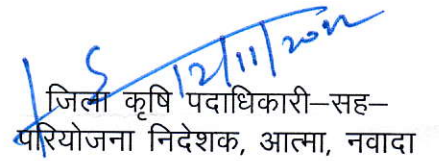 12/11/2022
जिला कृषि पदाधिकारी–सह–
परियोजना निदेशक, आत्मा, नवादा